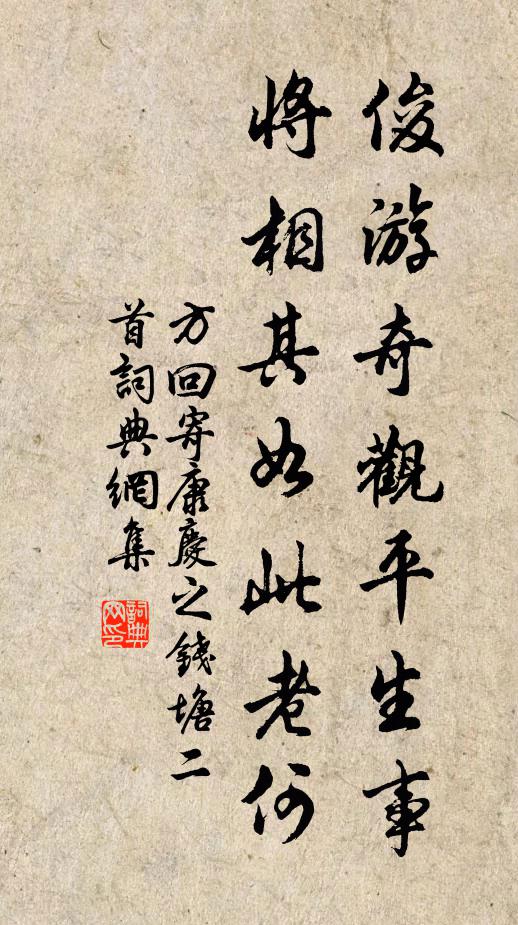 俊游奇觀平生事
將相其如此老何
方回寄康慶之錢塘二
首詞典網集
詞典
网印